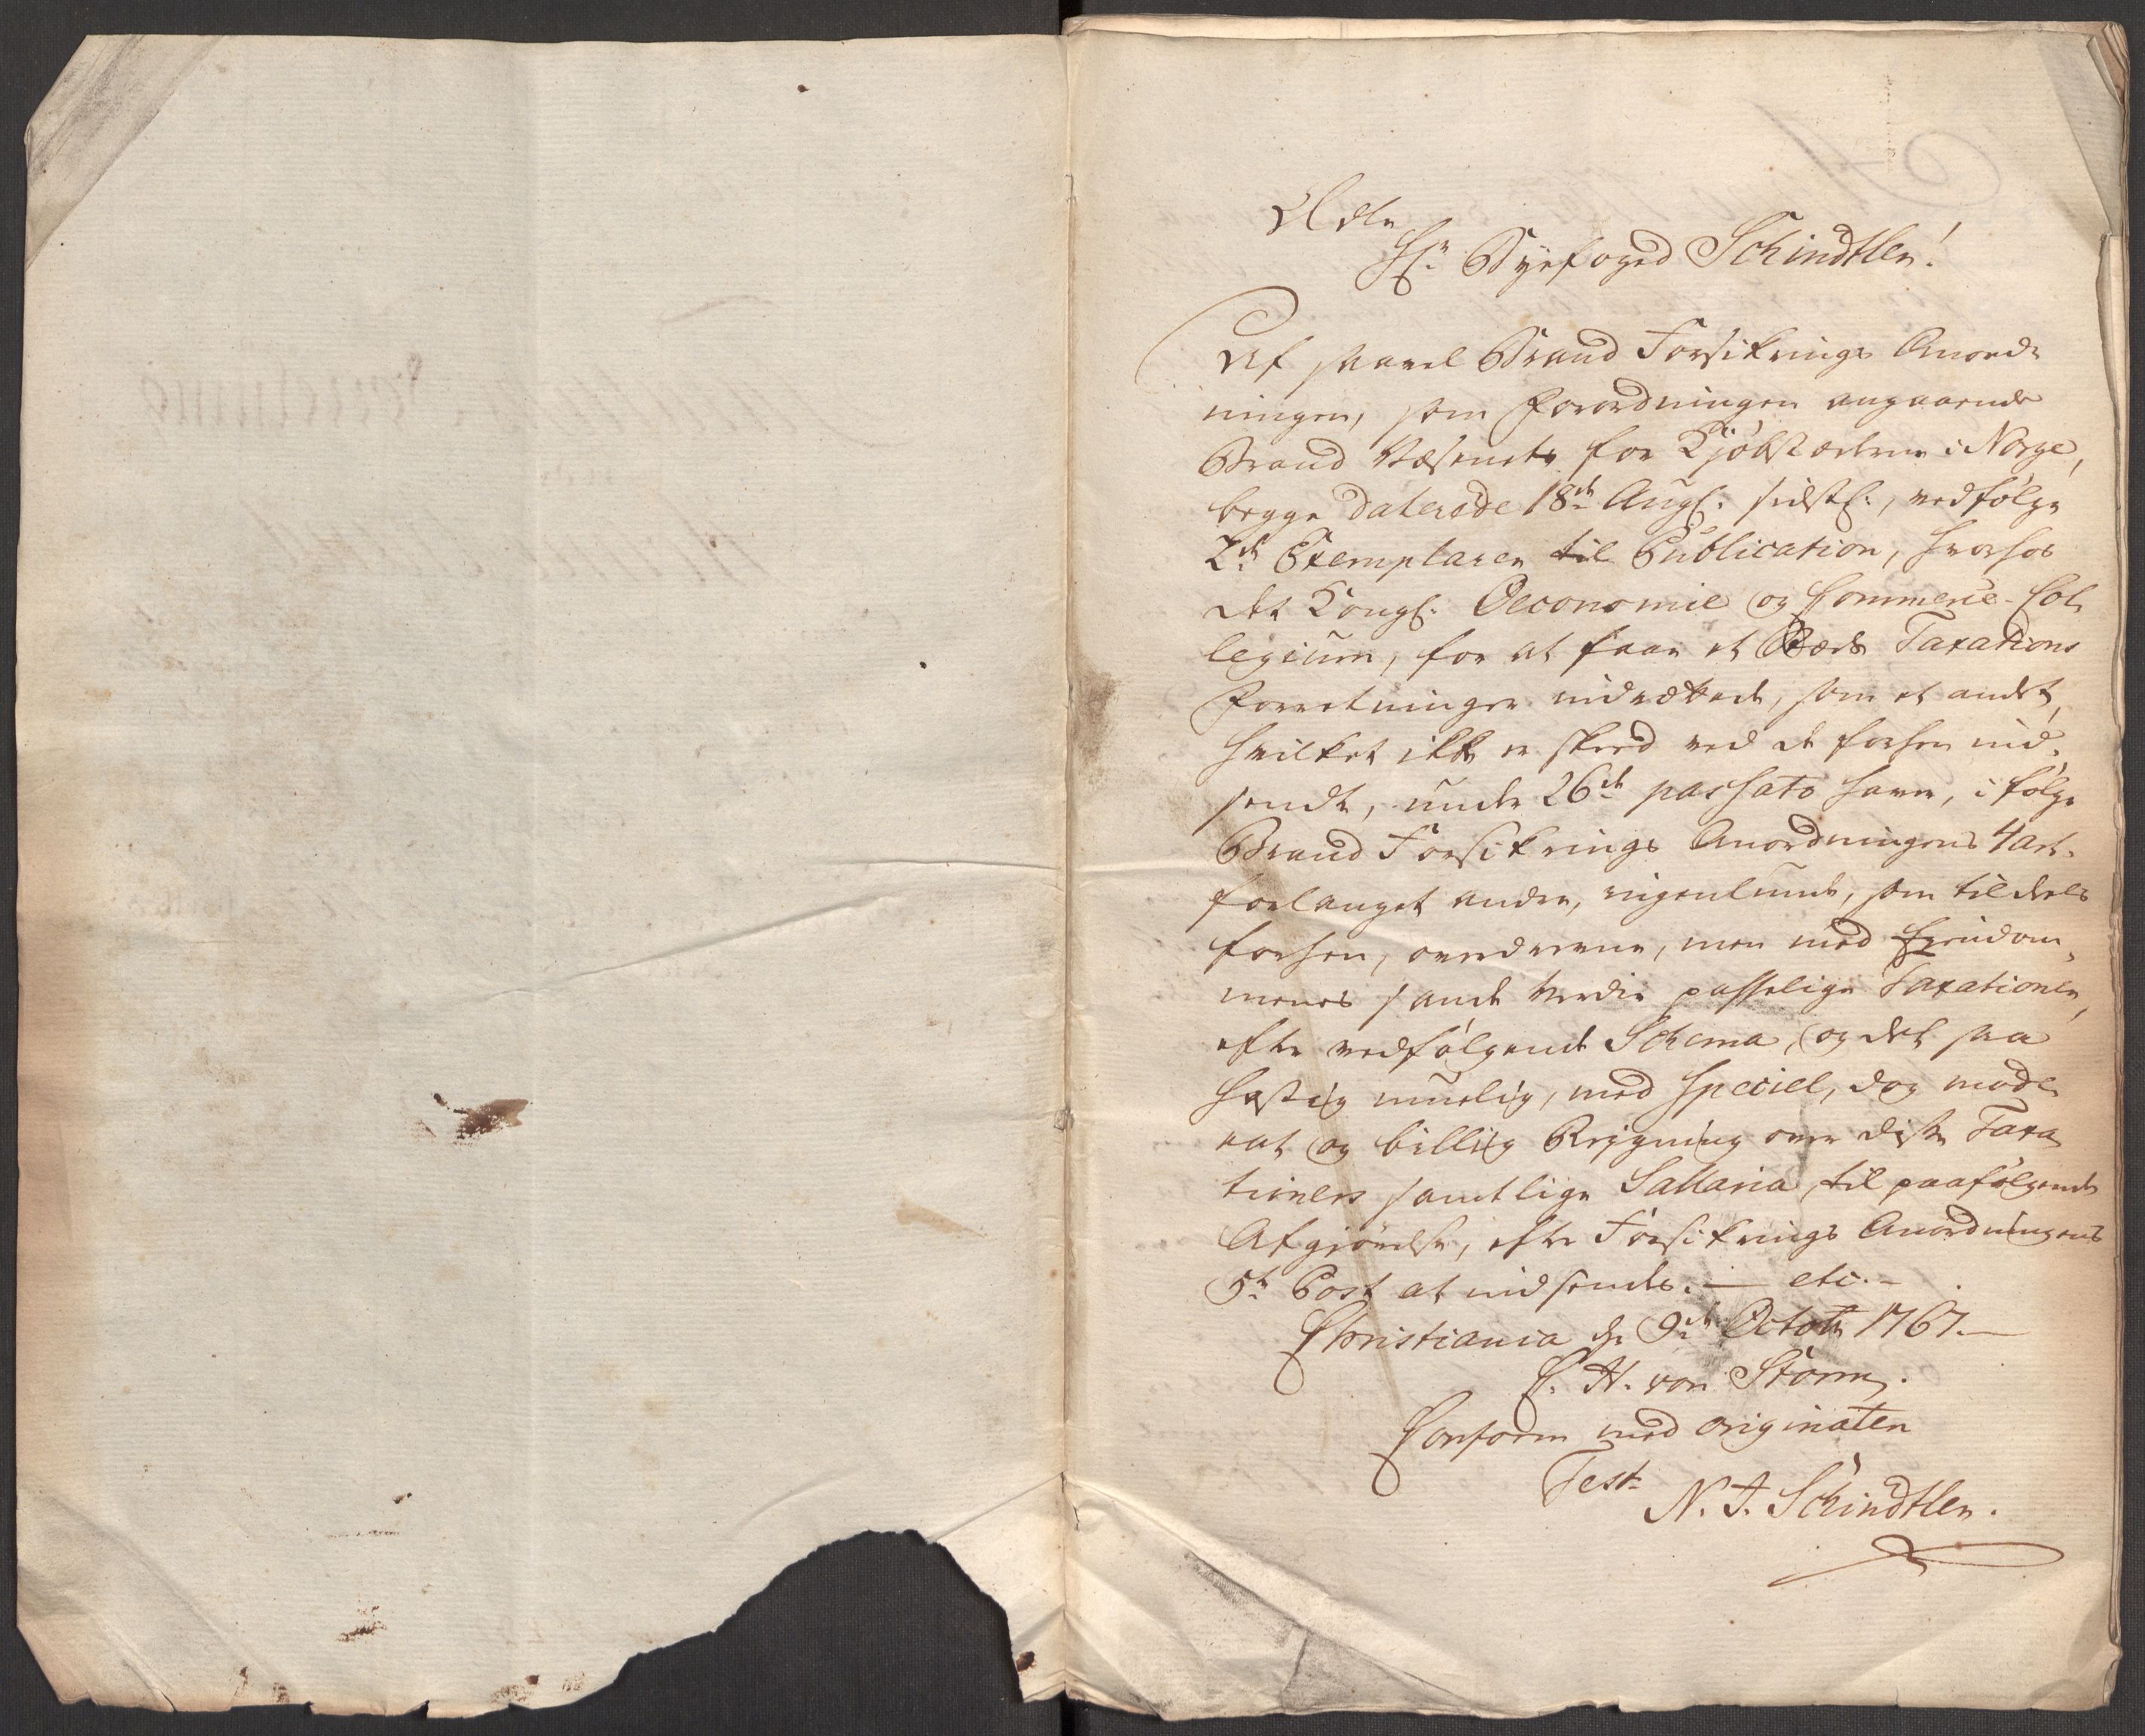 Ædle
Hr. Byefoged Schindtler!
Af saavel Brand Forsikrings Anord-
ningen, som Forordningen angaaende
Brand Væsenets for Kjøbstæderne i Norge,
begge daterede 18de Augs: sidstl:, vedfølge
2de Exemplarer til Publication, hvorhos
det Kongl: Oeconomie og Commerce-Col-
legium, for at faae et Steds Taxations
Forretninger indrettede, som et andet,
hvilket ikke er skeed ved de forhen ind-
sendte, under 26de passato haver, i følge
Brand Forsikrings Anordningens 4 art.
forlanget andre, ingenlunde, som tildeels
forhen, overdrevne, men med Eyendom-
menes sande Verdie passelige Taxationer,
efter vedfølgende Schema, og det saa
hastig muelig, med speciel, dog mode-
rat og billig Regning over disse Taxa
tioners samtlige Sallaria, til paafølgende
Afgiørelse, efter Forsikrings Anordningens
5te Post at indsendes. — etc. —
Christiania d. 9de Octobr 1767. —
C. H. von Storm.
Conform med originalen
Test
N. J. Schindtler.